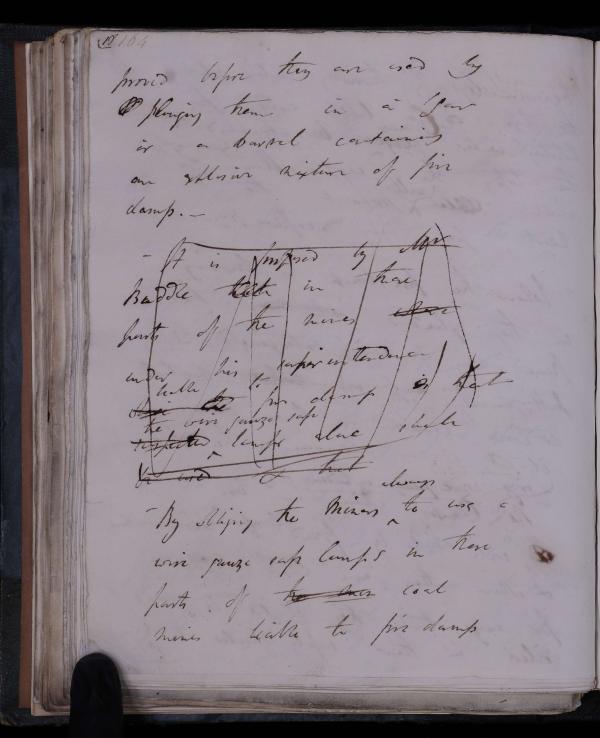 164
proved before they are used by
plunging them in a Jar
or a barrel containing
an explosive mixture of fire
damp. —
– It is proposed by Mr
Buddle that in those
parts of the mines
under his superintendence
liable to fire damp is that
the wire gauze safe
respected lamps alone shall
be used & that
always
– By obliging the Miners to use
wire gauze safe lamps in those
parts of the coal
mines liable to fire damp